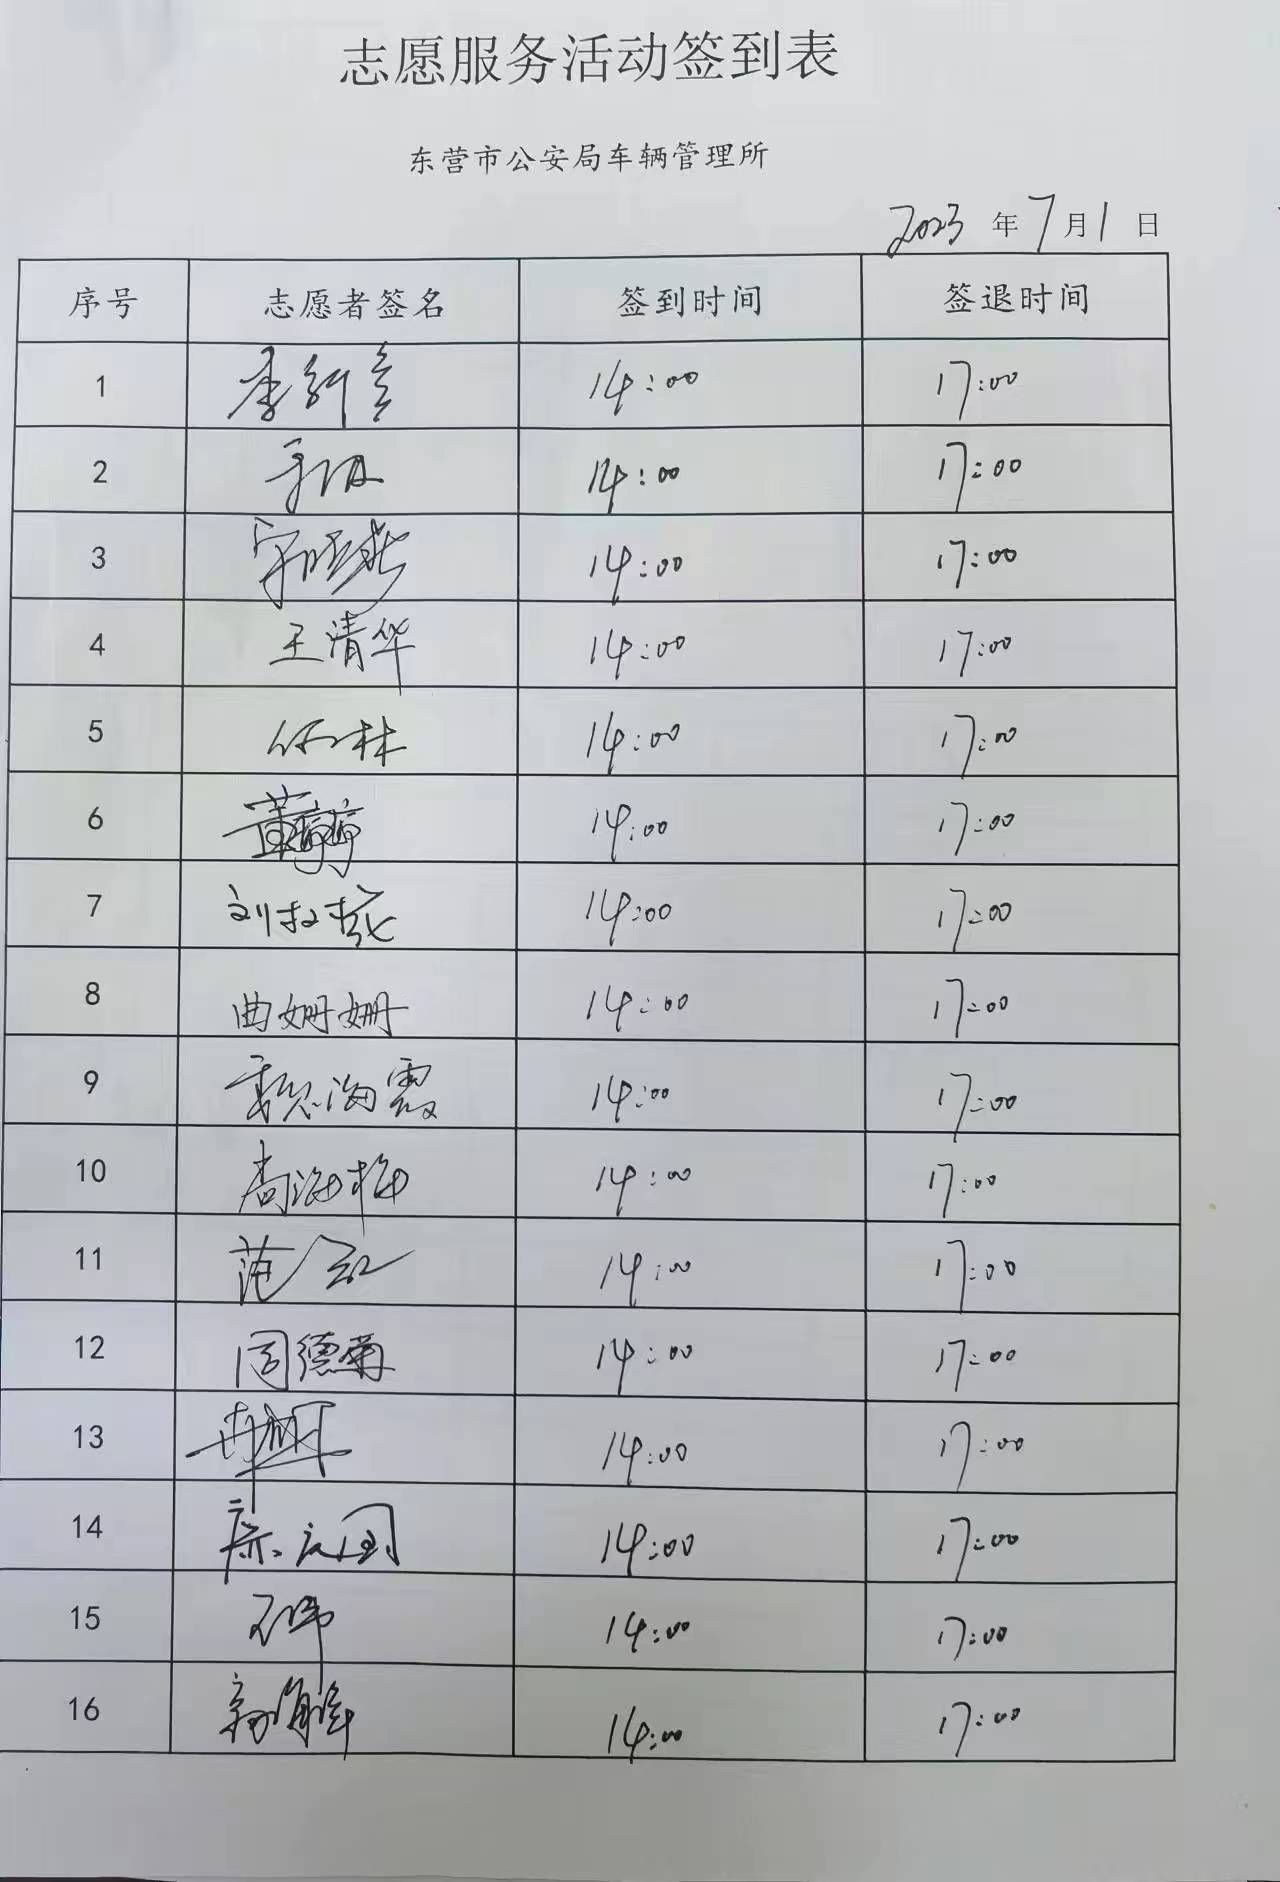 志愿服务活动签到表
东营市公安局车辆管理所
2023 年 7 月 1 日
序号 志愿者签名 签到时间 签退时间
1 14:00 17:00
2 14:00 17:00
3 14:00 17:00
4 王清华 14:00 17:00
5 14:00 17:00
6 14:00 17:00
7 14:00 17:00
8 曲姗姗 14:00 17:00
9 14:00 17:00
10 14:00 17:00
11 范红 14:00 17:00
12 周德菊 14:00 17:00
13 14:00 17:00
14 14:00 17:00
15 14:00 17:00
16 14:00 17:00